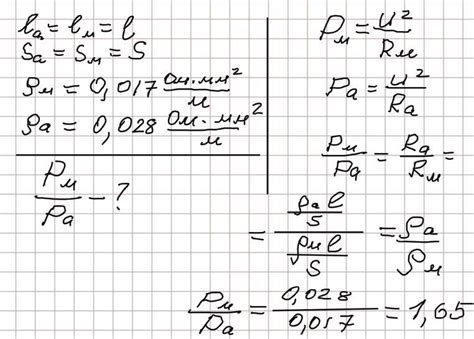 lа = lм = l
Sа = Sм = S
ρм = 0,017 Ом·мм²/м
ρа = 0,028 Ом·мм²/м
Pм/Pа - ?
Pм = U²/Rм
Pа = U²/Rа
Pм/Pа = Rа/Rм =
= (ρа l/S)/(ρм l/S) = ρа/ρм
Pм/Pа = 0,028/0,017 = 1,65